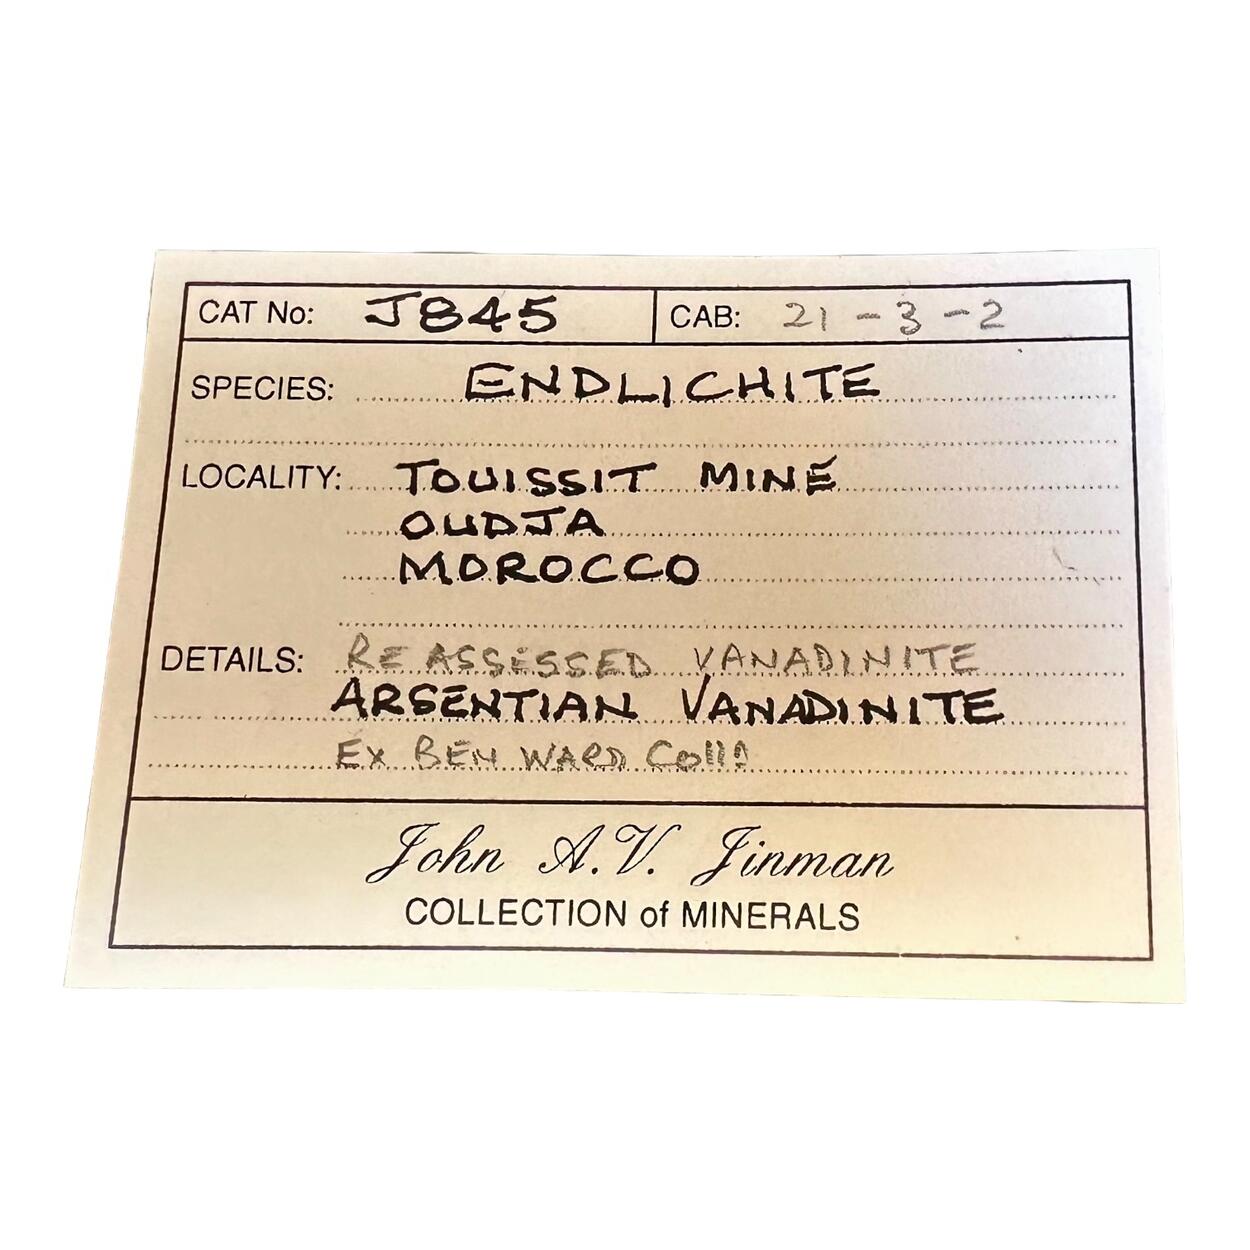 CAT No: J845 CAB: 21-3-2
SPECIES: ENDLICHITE
LOCALITY: TOUISSIT MINE
OUDJA
MOROCCO
DETAILS: RE ASSESSED VANADINITE
ARSENTIAN VANADINITE
EX BEN WARD Colln
John A.V. Jinman
COLLECTION of MINERALS